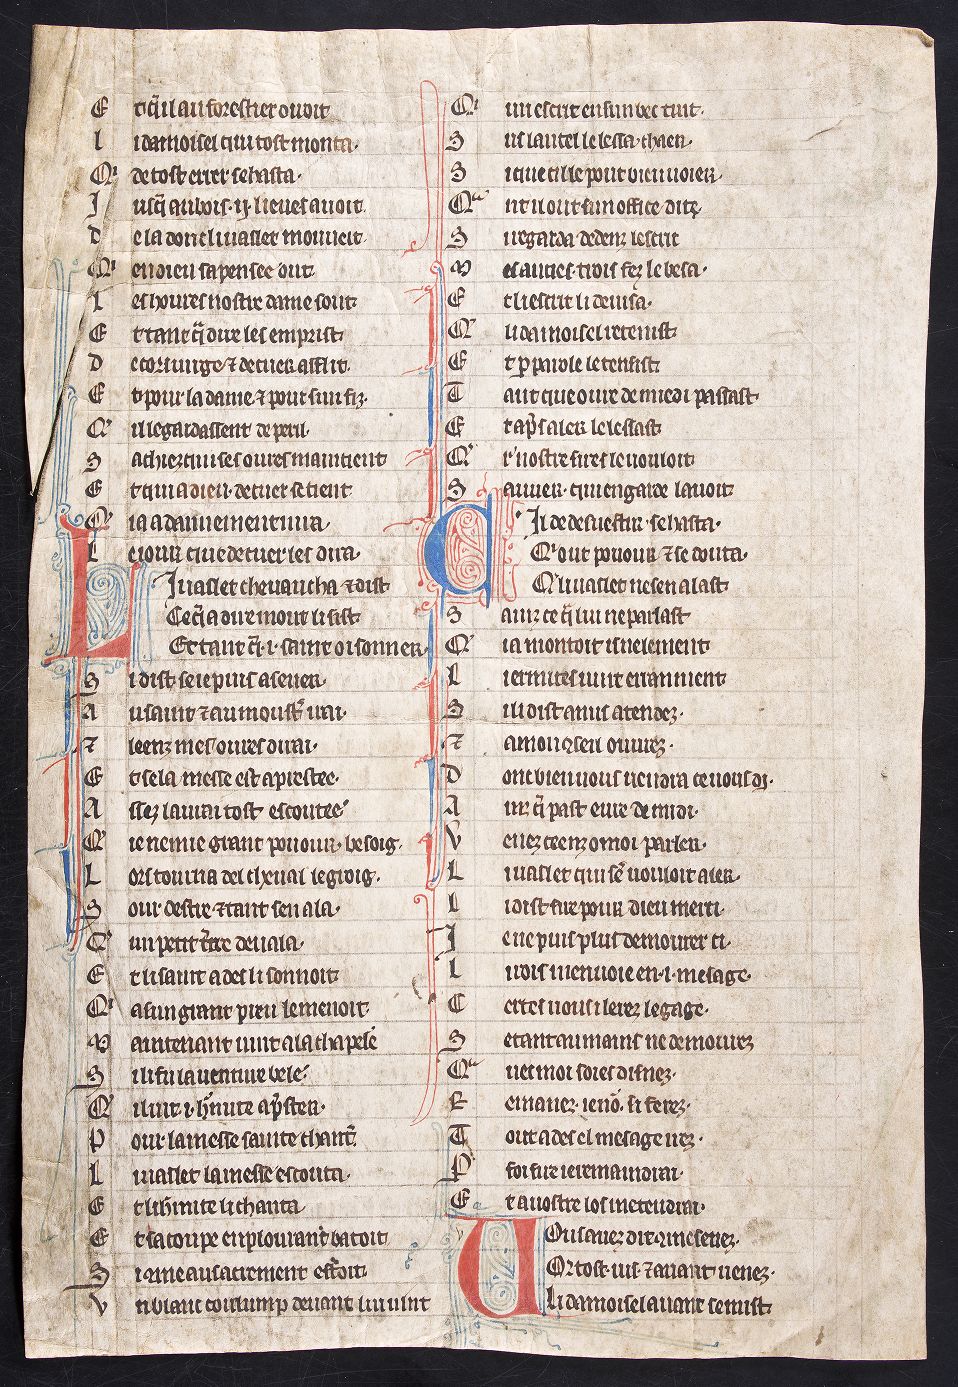 E t q̃ il au forestier ouoit
L i damoisel qui tost monta·
Qi de tost errer se hasta·
J usq̃ au bois ·ij· lieues auoit
D e la dont li uaslet mouueit·
Qi en dieu sa pensee out
L es houres nostre dame sout
E t tant q̃ dire les emprist
D e cor uirge ⁊ de cuer afflit·
E t pour la dame ⁊ pour sun fiz·
Q' il le gardassent de peril·
S achiez qui ses oures maintient
E t qui a dieu· de cuer se tient
Q' ia a dannement nira
L e iour que de cuer les dira·
L I uaslet cheuaucha ⁊ dist
Ce q̃ a dire mout li sist
Et tant q̃ ·i· saint oi sonner·
S i dist se ie puis asener·
A u saint ⁊ au moust̃ irai·
⁊ leenz mes oures dirai·
E t se la messe est aprestee·
A ssez laurai tost escoutee
Q' ie nenne grant pouour· besoig·
L ors tourna del cheual le groig·
S our destre ⁊ tant sen ala·
Q' un petit t̃tre deuala·
E t li saint ades li sonnoit
Qi a sun grant preu le menoit
M aintenant uint a la chapele
S i li fu lauenture bele
Q' il uit ·i· h̃mite ap̃ster·
P our la messe sainte chant̃
L i uaslet la messe escouta·
E t li h̃mite li chanta
E t sa coupe en plourant batoit
S i q̃ me au sacrement estoit
V n blanc coulump deuant lui uint
Qi un escrit en sun bec tint·
S us lautel le lessa chaer·
S i que cil le pout bien uoier·
Qa nt il out sun office dit
S i regarda dedenz lescrit
M es auncres trois fez le besa·
E t li escrit li deuisa·
Q' li damoisel retenist
E t p̱ parole le tensist
T ant que oure de miedi passast
E t ap̃s aler le lessast
Q' r' nostre sires le uouloit
S auuer· qui en garde lauoit
C Il de desuestir· se hasta·
Q' out pouour ⁊ se douta·
Q' li uaslet ne sen alast
S anz ce q̃ lui ne parlast
Q' ia montoit isnelement
L iermites uint erranment
S i li dist amis atendez·
⁊ a moi q̃ seil ouurez·
D ont bien uous uendra ce uous di·
A inz q̃ past eure de midi·
V enez ceenz o moi parler·
L i uaslet qui se uouloit aler
L i dist sire pour dieu merci·
J e ne puis plus demourer ci
L i rois menuoie en ·i· mesage·
C ertes uous i lerez le gage·
S etant au mains ne demourez
Qa uec moi soiés disnez·
R emanez· ie nõ· si ferez·
T out ades el mesage irez·
P' foi sire ie remaindrai·
E t a uostre los me tendrai·
U Ou sauez dit q̃ me senez·
Or tost sus ⁊ auant uenez·
Li damoisel auant se mist